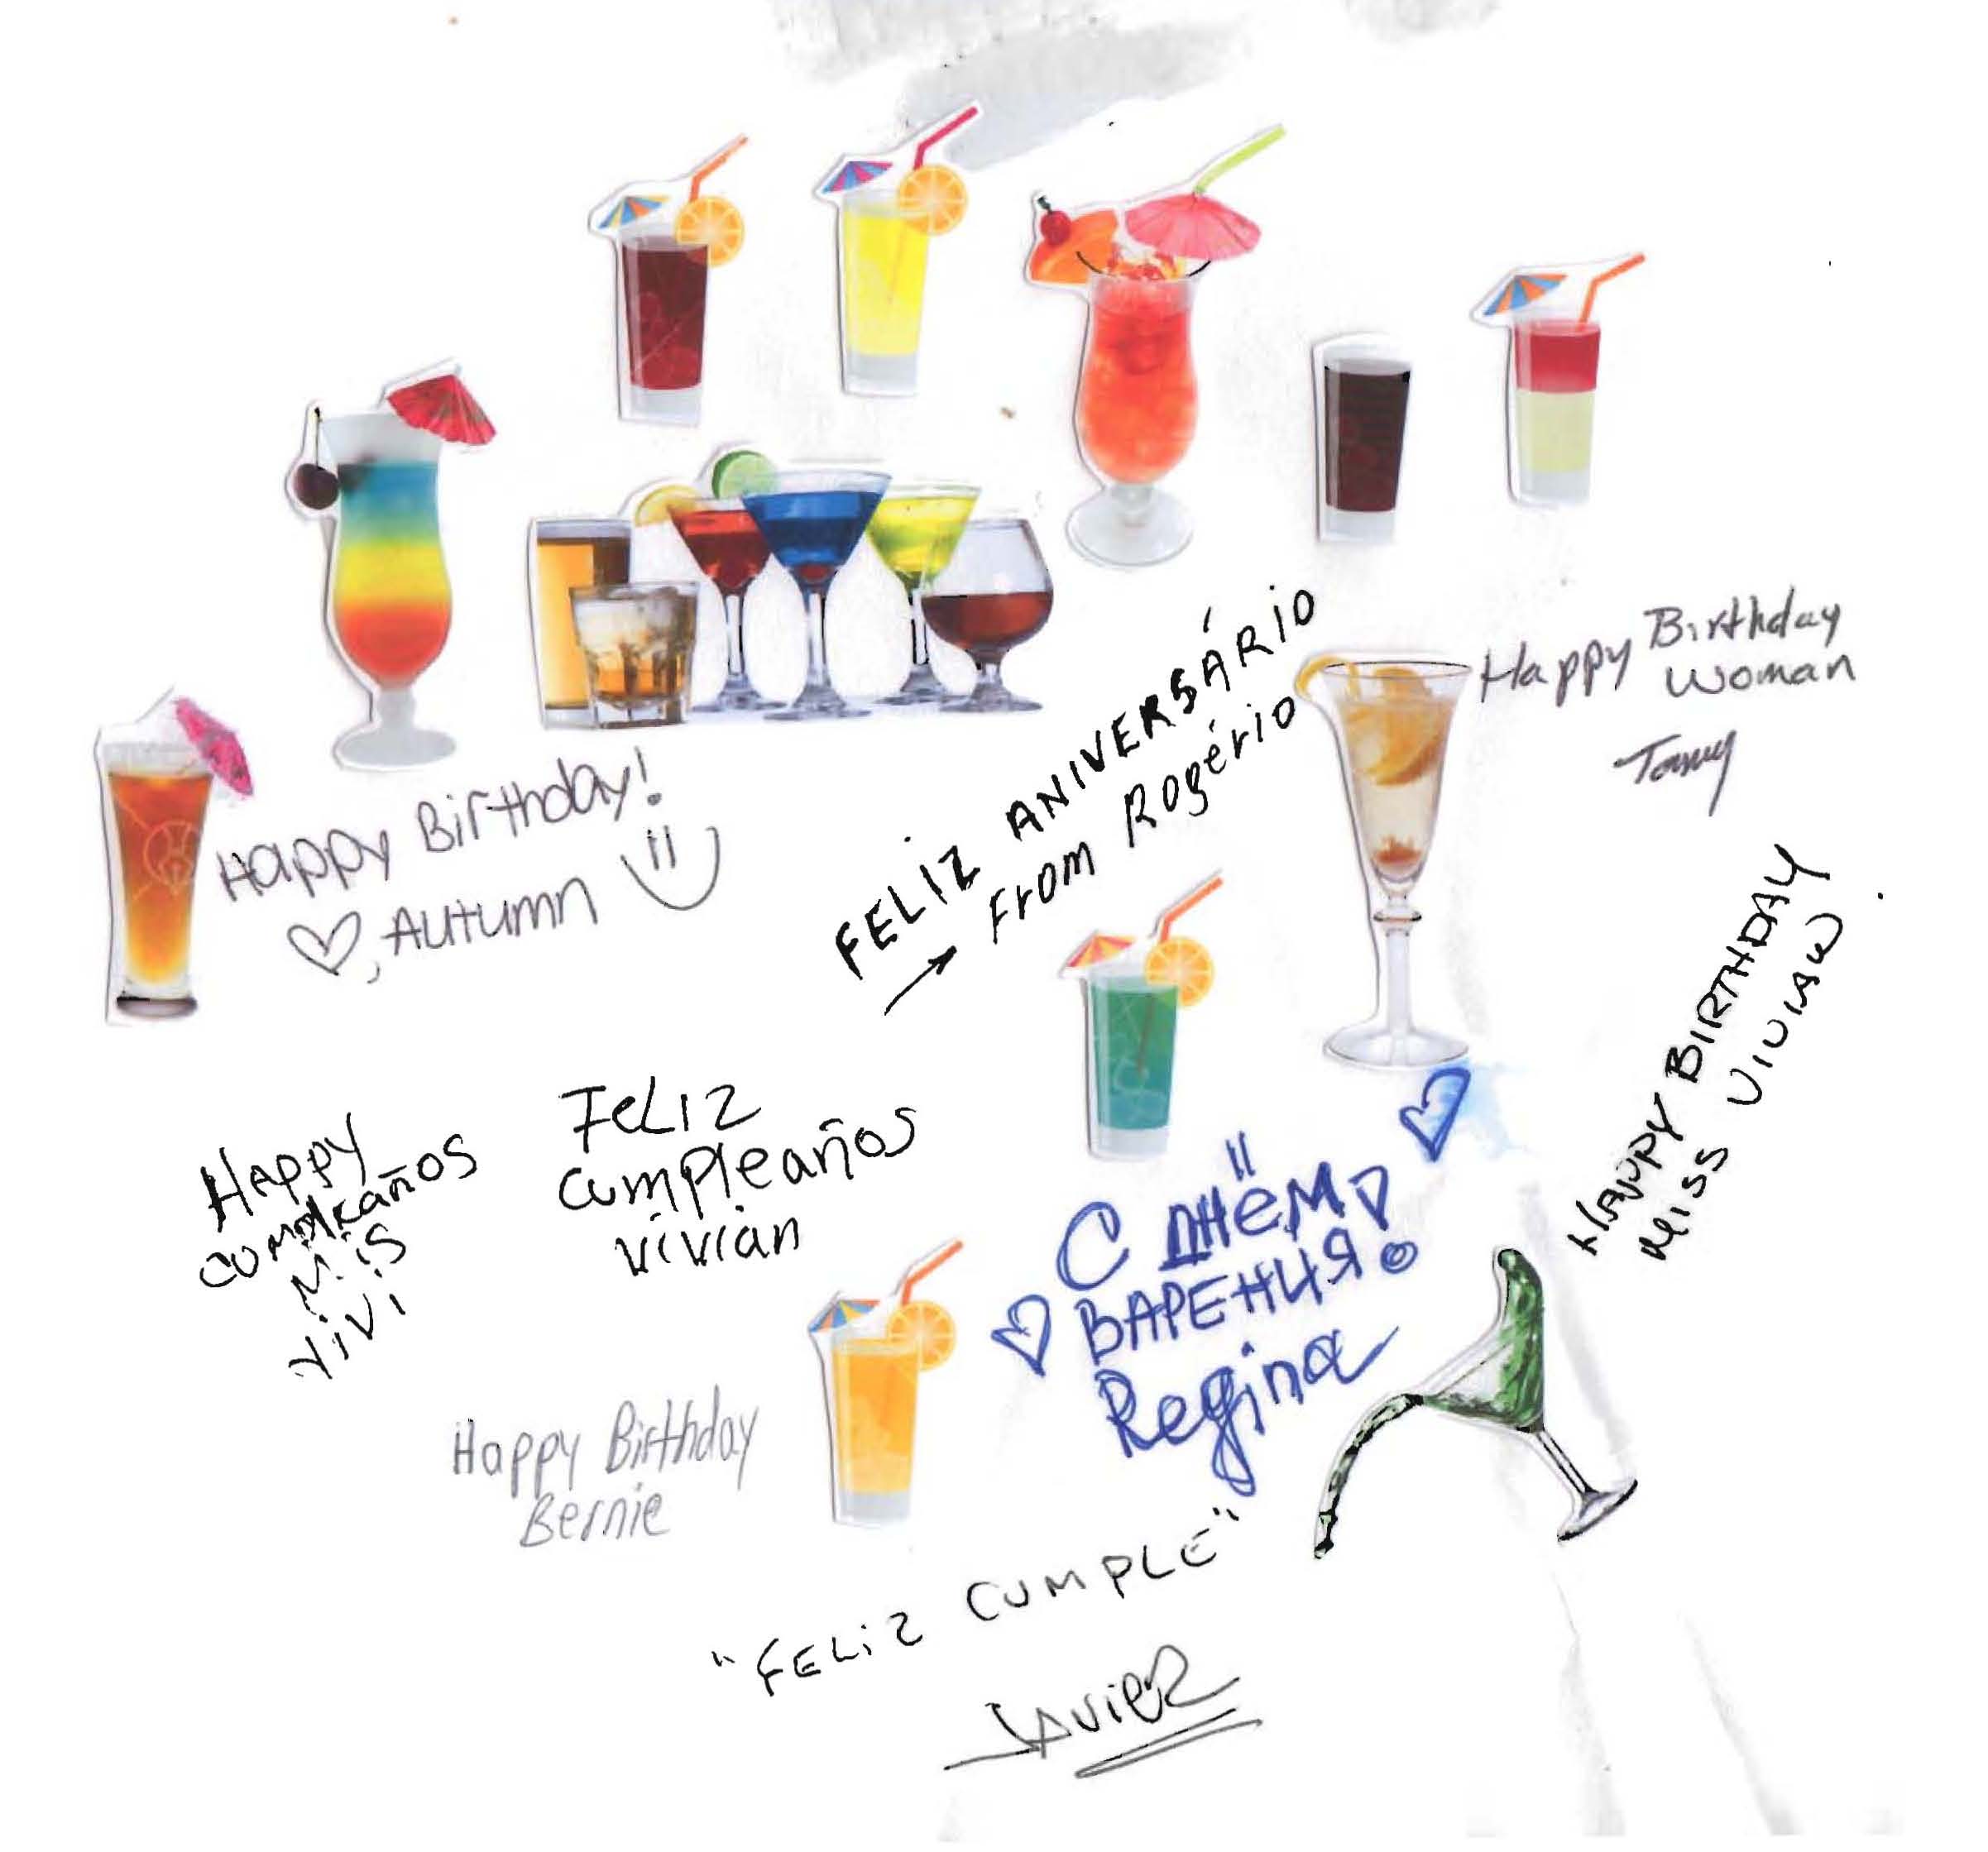 Happy Birthday
Woman
Tommy
FELIZ ANIVERSÁRIO
→ From Rogério
Happy Birthday!
♡, Autumn
HAPPY BIRTHDAY
MISS VIVIAN
Happy
cumpleaños
Mis
Vivi
Feliz
cumpleaños
vivian
С ДНЁМ
ВАРЕНИЯ!
Regina
Happy Birthday
Bernie
"FELIZ CUMPLE"
JAVIER